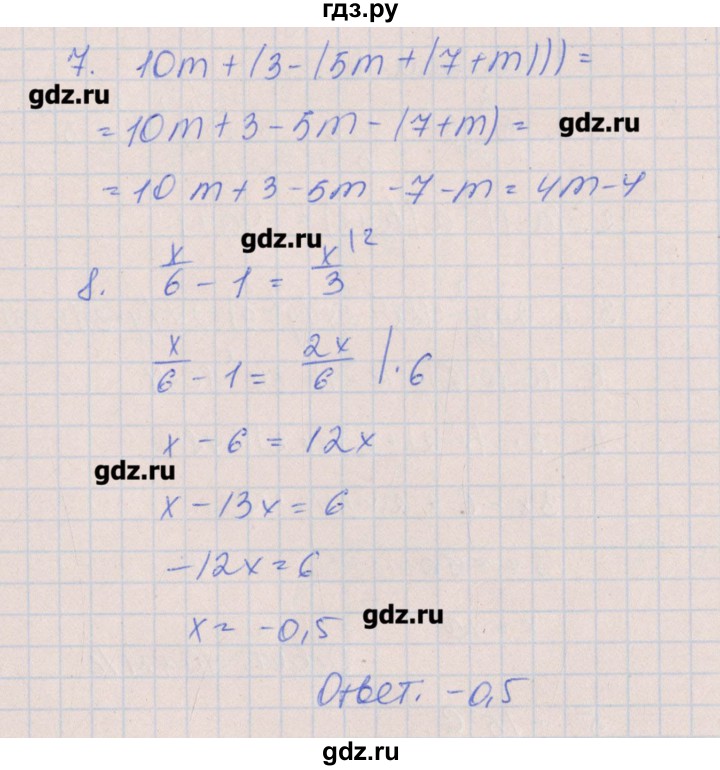 гдз.ру
7. 10m + (3 - (5m + (7 + m))) =
gdz.ru
= 10m + 3 - 5m - (7 + m) = gdz.ru
= 10m + 3 - 5m - 7 - m = 4m - 4
gdz.ru
8. x/6 - 1 = x/3 |2
x/6 - 1 = 2x/6 | · 6
x - 6 = 12x
gdz.ru
x - 13x = 6
-12x = 6
x = -0,5 gdz.ru
Ответ. -0,5
gdz.ru